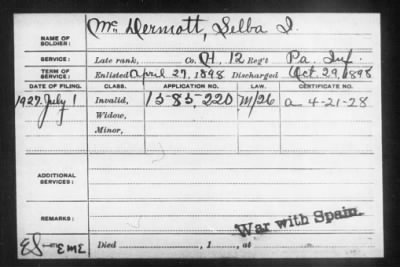 NAME OF SOLDIER: McDermott, Selba I.
SERVICE: Late rank, Co. H, 12 Reg't Pa. Inf.
TERM OF SERVICE: Enlisted April 27, 1898 Discharged Oct. 29, 1898
DATE OF FILING. CLASS. APPLICATION NO. LAW. CERTIFICATE NO.
1927. July 1 Invalid, 1585220 M/26 a 4-21-28
Widow,
Minor,
ADDITIONAL SERVICES:
REMARKS: War with Spain.
EME Died , 1 , at